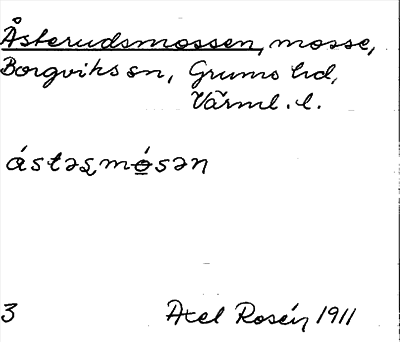 Åsterudsmossen, mosse,
Borgviks sn, Grums hd,
Värml. l.
ástəsmósən
3 Axel Rosén 1911